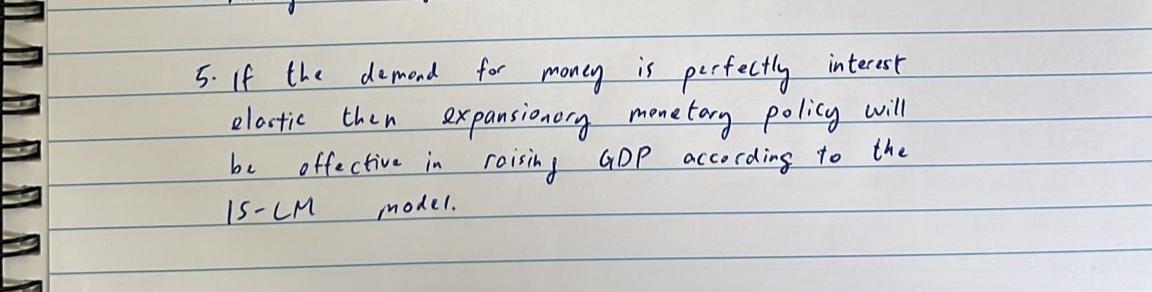 5. If the demand for money is perfectly interest
elastic then expansionary monetary policy will
be effective in raising GDP according to the
IS-LM model.